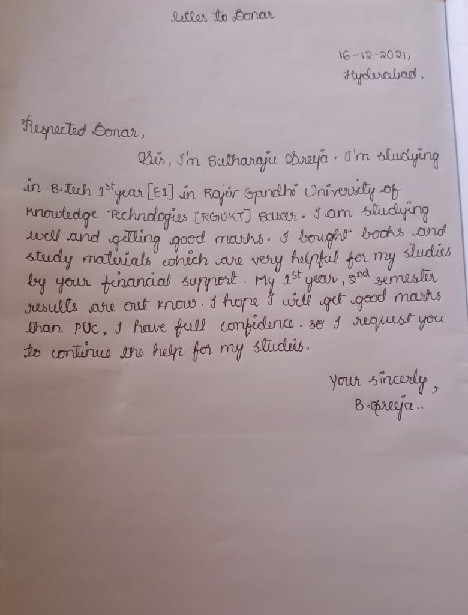 letter to Donar
16-12-2021,
Hyderabad.
Respected Donar,
Sir, I'm Butharaju Sreeja. I'm studying
in B.tech 1st year [E1] in Rajiv Gandhi University of
Knowledge Technologies [RGUKT] Basar. I am studying
well and getting good marks. I bought books and
study materials which are very helpful for my studies
by your financial support. My 1st year, 2nd semester
results are out know. I hope I will get good marks
than PUC. I have full confidence. so I request you
to continue the help for my studies.
Your sincerly,
B. Sreeja..